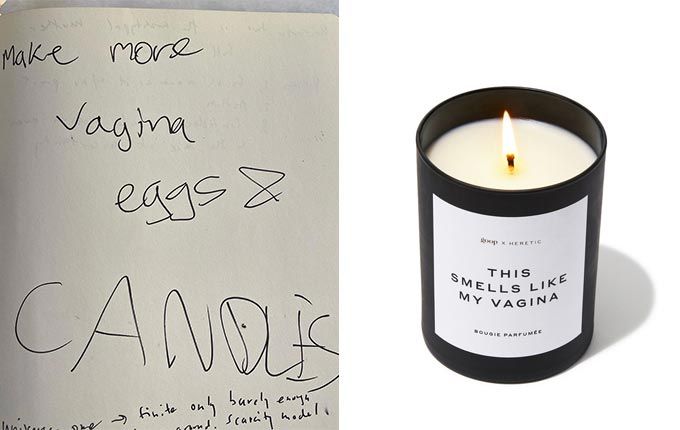 Make more
vagina
eggs &
CANDLES
one → finite only barely enough
scarcity model.
goop x HERETIC
THIS
SMELLS LIKE
MY VAGINA
BOUGIE PARFUMÉE